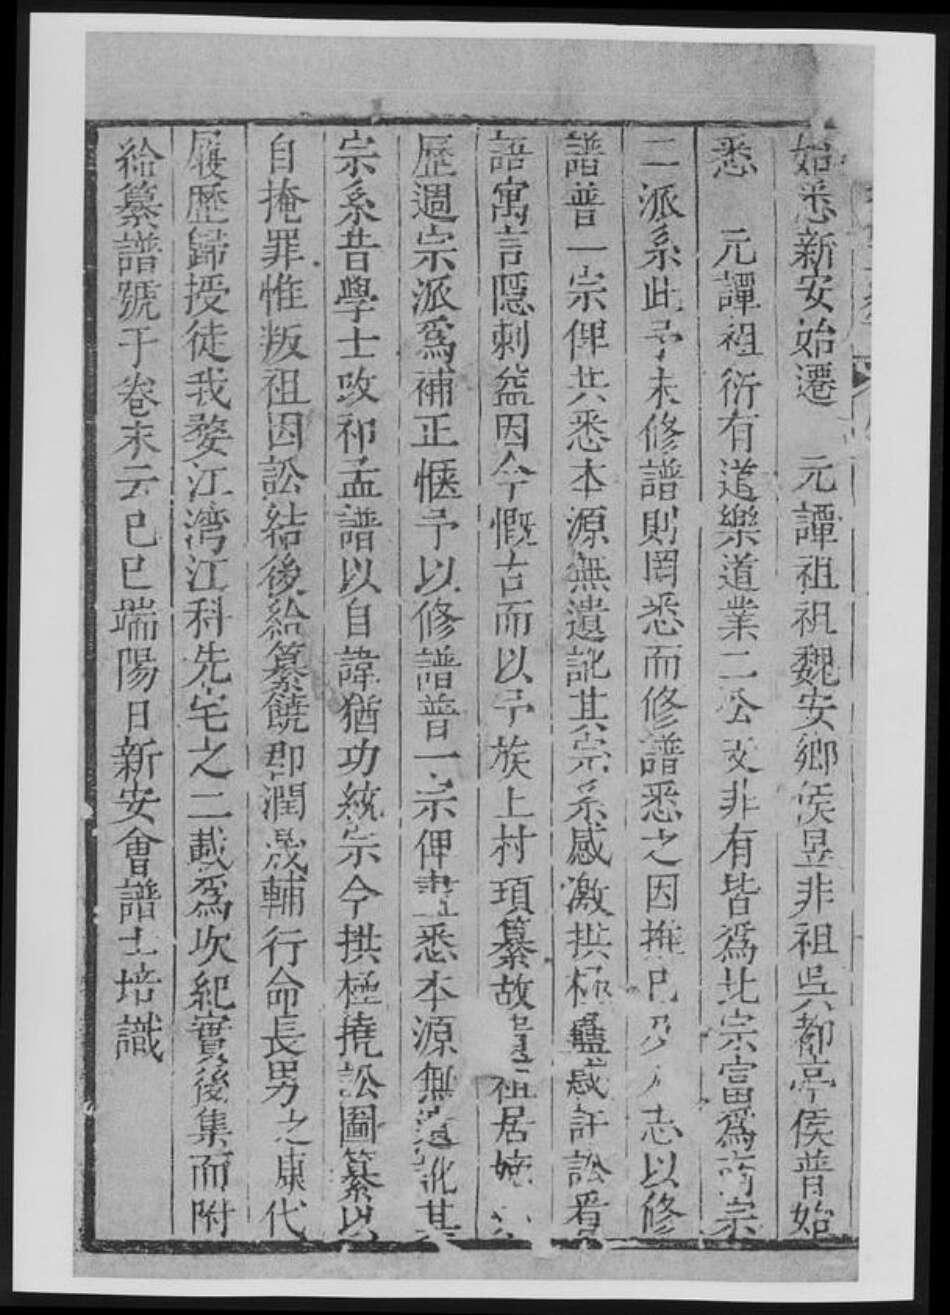 始悉新安始遷　元譚祖祖魏安鄉侯昱非祖吳都亭侯普始
悉　元譚祖衍有道樂道業二公支非有皆爲北宗富爲南宗
二派系此予未修譜則罔悉而修譜悉之因推己及人志以修
譜普一宗俾共悉本源無遺訛其宗系感激拱極蠱惑訐訟看
語寓言隱刺益因今慨古而以予族上村項纂故遺祖居嬪
歷週宗派爲補正愜予以修譜普一宗俾盡悉本源無遺訛其
宗系昔學士改祁孟譜以自諱猶功統宗今拱極撓訟圖纂以
自掩罪惟叛祖因訟結後給纂饒郡潤晟輔行命長男之康代
履歷歸授徒我婺江湾江科先宅之二載爲次紀實後集而附
給纂譜號于卷末云巳巳端陽日新安會譜士培識